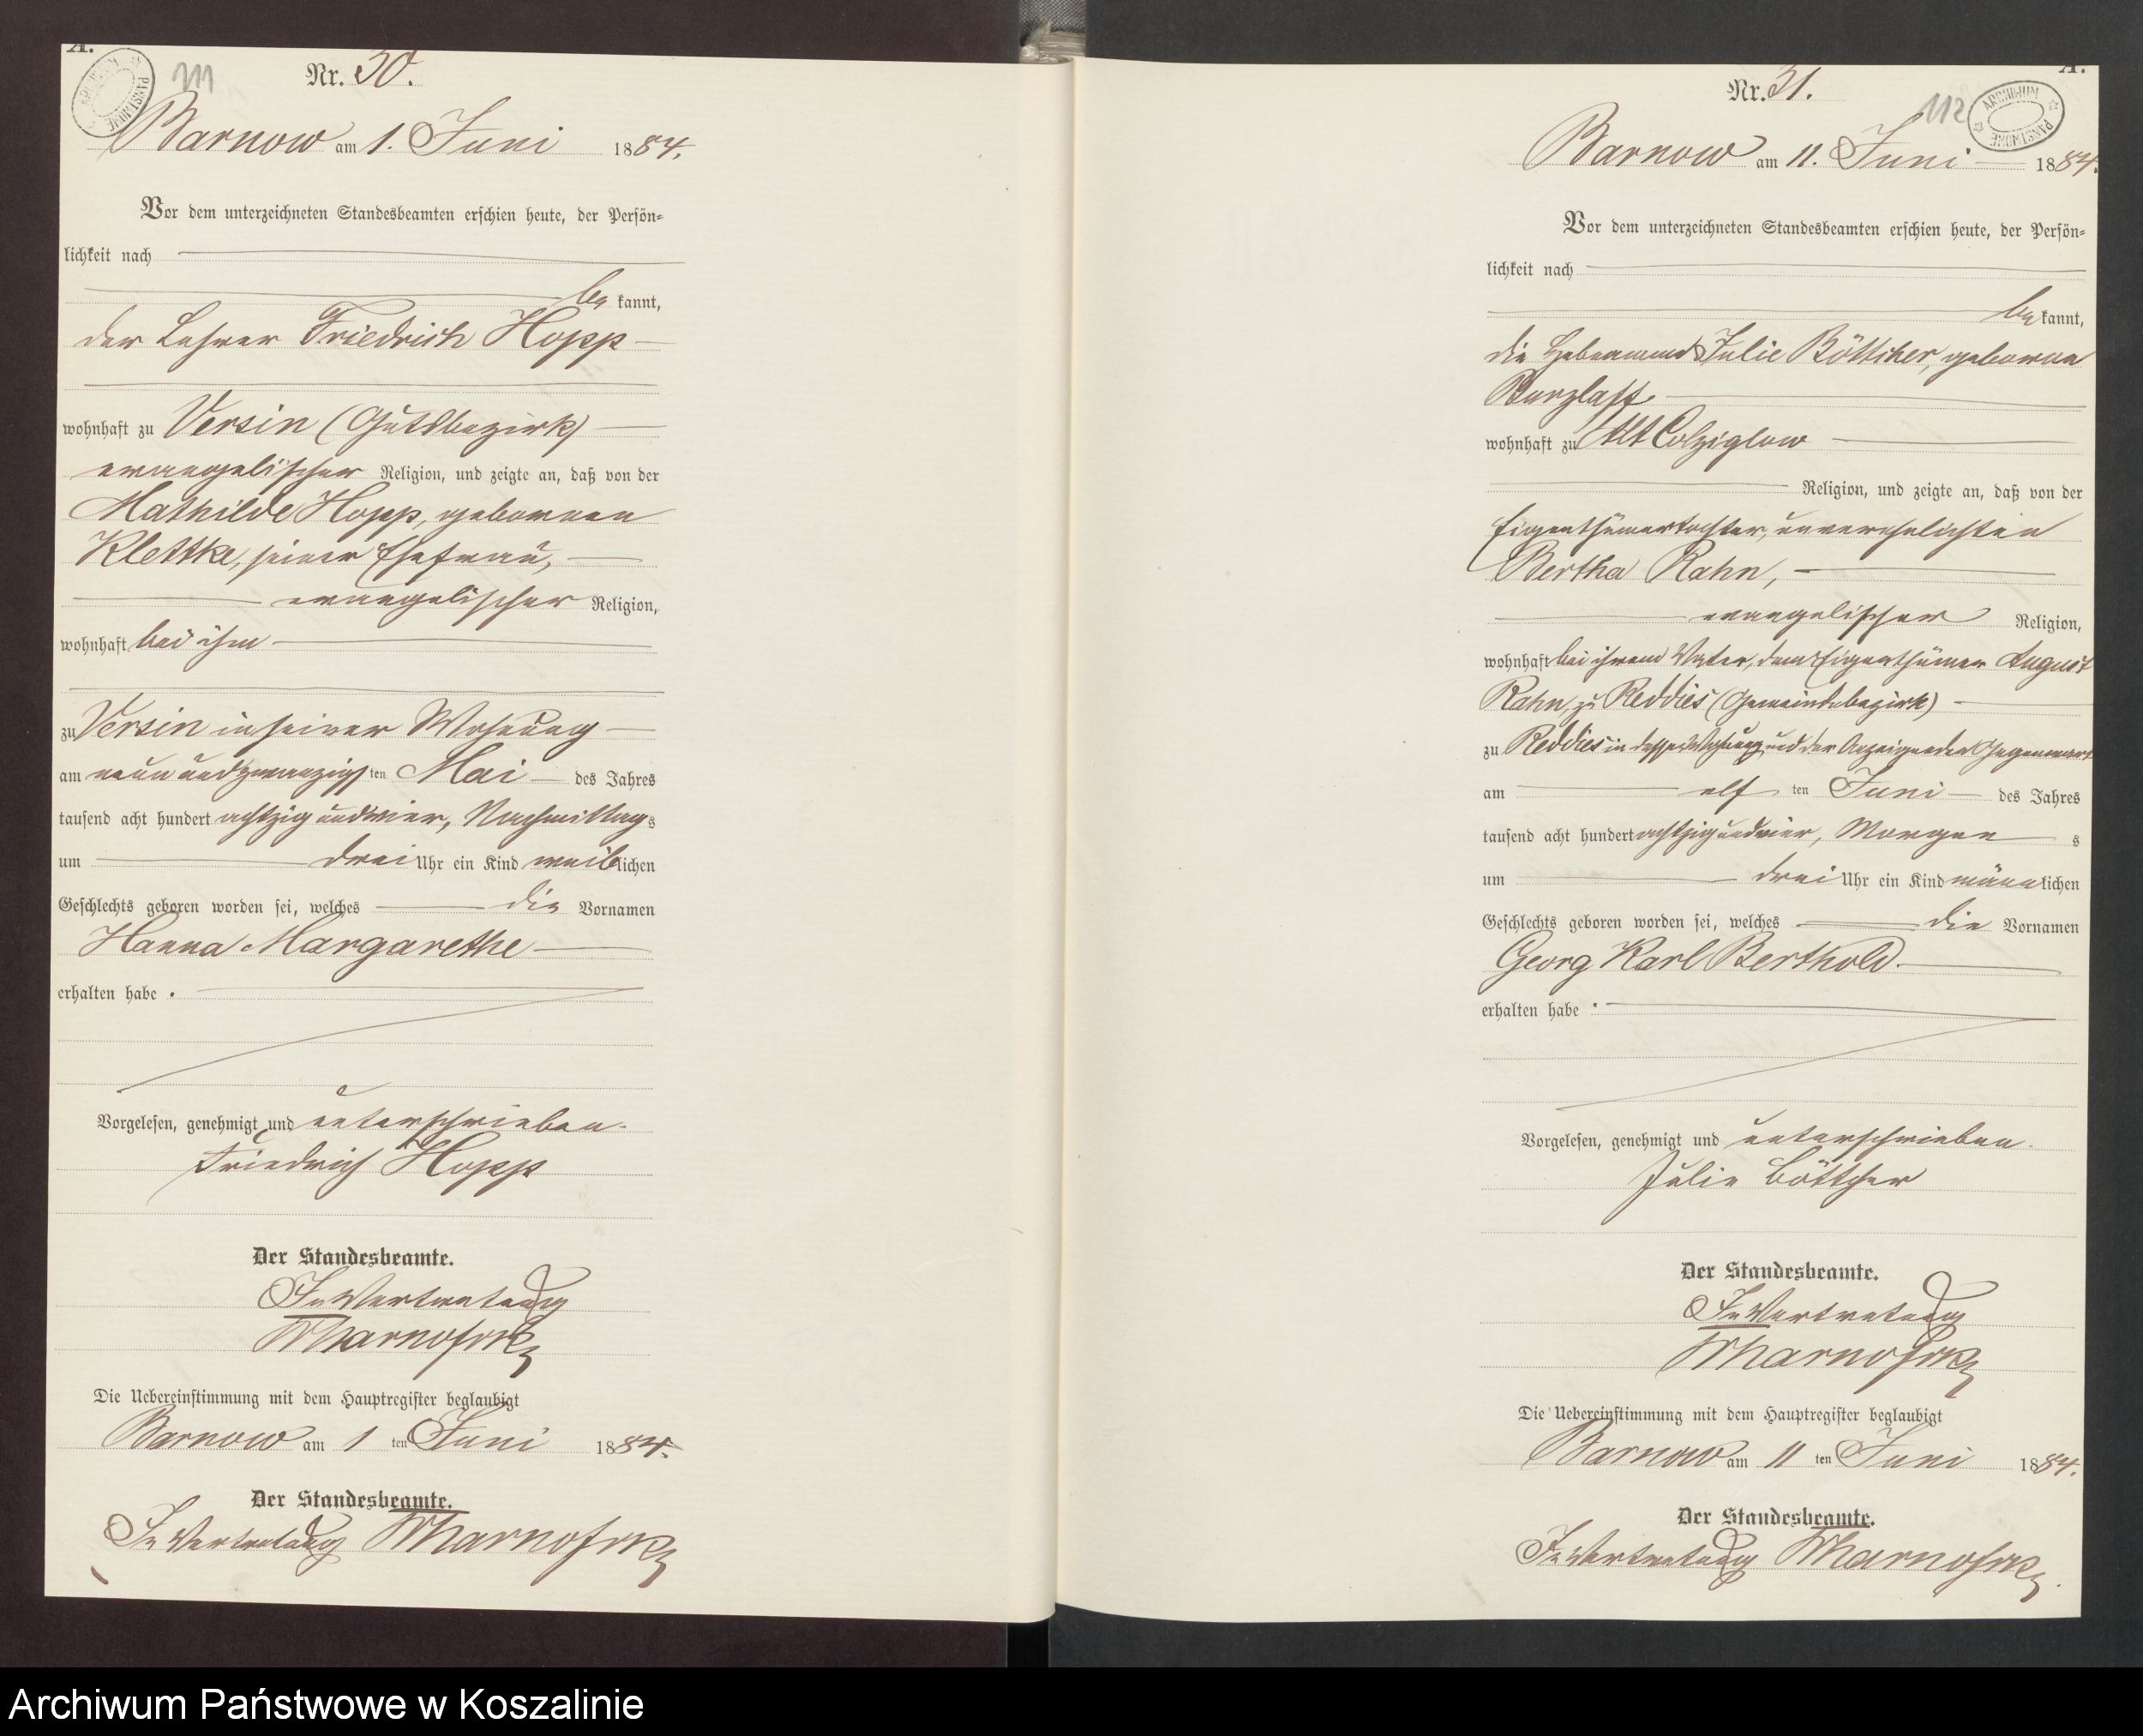 A.
ARCHIWUM PAŃSTWOWE
111
Nr. 30.
Barnow am 1. Juni 1884.
Vor dem unterzeichneten Standesbeamten erschien heute, der Persön=
lichkeit nach
be kannt,
der Lehrer Friedrich Hopp
wohnhaft zu Versin (Gutsbezirk)
evangelischer Religion, und zeigte an, daß von der
Mathilde Hopp, geborenen
Klettke, seiner Ehefrau,
evangelischer Religion,
wohnhaft bei ihm
zu Versin in seiner Wohnung
am neun und zwanzigsten Mai des Jahres
tausend acht hundert achtzig und vier, Nachmittags
um drei Uhr ein Kind weiblichen
Geschlechts geboren worden sei, welches die Vornamen
Hanna Margarethe
erhalten habe.
Vorgelesen, genehmigt und unterschrieben.
Friedrich Hopp
Der Standesbeamte.
In Vertretung
Die Uebereinstimmung mit dem Hauptregister beglaubigt
Barnow am 1 ten Juni 1884.
Der Standesbeamte.
In Vertretung
A.
ARCHIWUM PAŃSTWOWE
112
Nr. 31.
Barnow am 11. Juni 1884.
Vor dem unterzeichneten Standesbeamten erschien heute, der Persön=
lichkeit nach
be kannt,
die Hebeamme Julie Böttcher, geborene
Burzlaff
wohnhaft zu Alt Colziglow
Religion, und zeigte an, daß von der
Eigenthümertochter, unverehelichten
Bertha Rahn,
evangelischer Religion,
wohnhaft bei ihrem Vater, dem Eigenthümer August
Rahn, zu Reddies (Gemeindebezirk)
zu Reddies in dessen Wohnung und der Anzeigenden Gegenwart
am elf ten Juni des Jahres
tausend acht hundert achtzig und vier, Morgens
um drei Uhr ein Kind männlichen
Geschlechts geboren worden sei, welches die Vornamen
Georg Karl Berthold.
erhalten habe.
Vorgelesen, genehmigt und unterschrieben.
Julie Böttcher
Der Standesbeamte.
In Vertretung
Die Uebereinstimmung mit dem Hauptregister beglaubigt
Barnow am 11 ten Juni 1884.
Der Standesbeamte.
In Vertretung
Archiwum Państwowe w Koszalinie